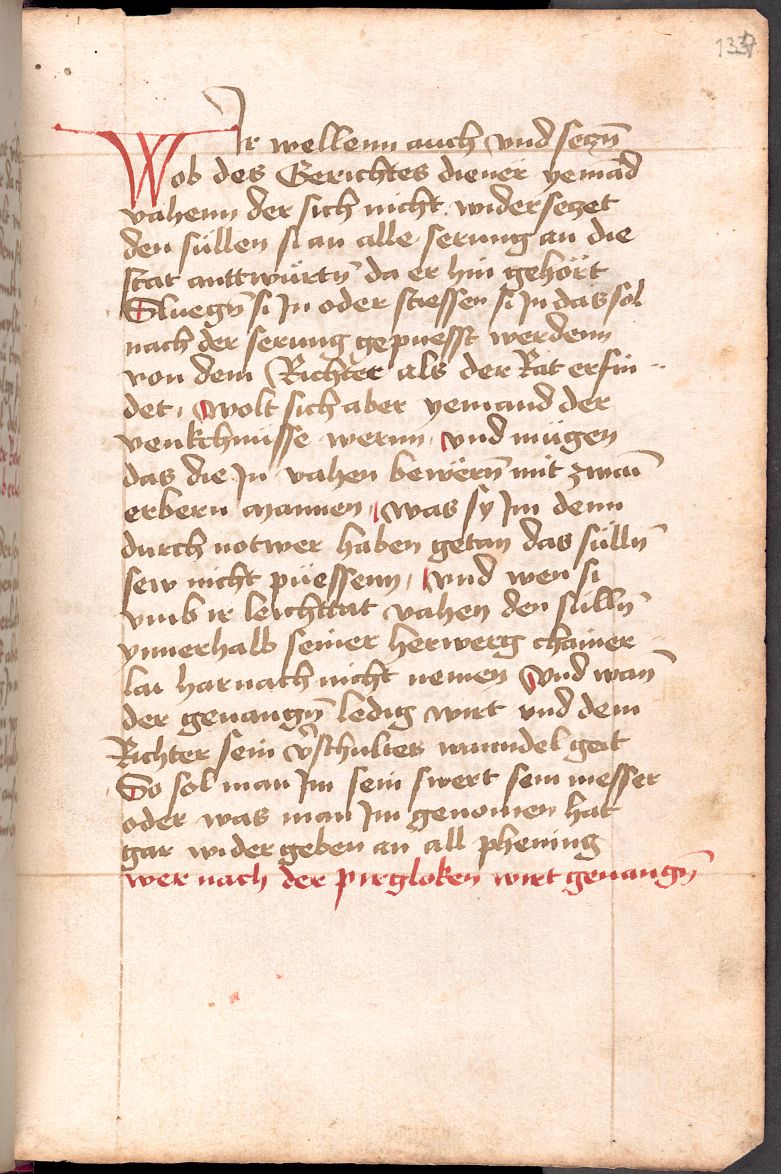 133
WIr wellenn auch vnd seczn̄
ob des Gerichtes diener yemād
vahenn der sich nicht widersetzet
den süllen si an alle serung an die
stat anttwürtn̄ da er hin gehört
Sluegn̄ si Jn oder stiessen si Jn das sol
nach der serung gepuesst werdenn
von dem Richter als der Rat erfin
det, wolt sich aber yemand der
venkchnüsse wernn, vnd mügen
das die Jn vahen bewërn̄ mit zwain̄
erbern Mannen, was sy Jm denn
durch notwer haben getan das sülln̄
sew nicht püessenn, vnd wen si
vmb ir leichttat vahen den sülln̄
ynnerhalb seiner herwerg chainer
lai harnach nicht nemen vnd wan̄
der geuangn̄ ledig wirt vnd dem
Richter sein v̄schultes wanndel geit
So sol man Jm sein swert sein messer
oder was man Jm genomen hat
gar wider geben an all phening
wer nach der pirgloken wirt geuangn̄